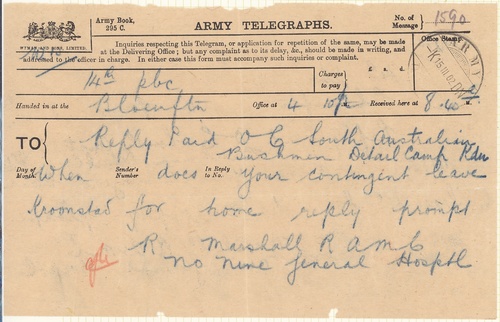 Army Book, 295 C.
ARMY TELEGRAPHS.
No. of Message } 1590
WYMAN AND SONS, LIMITED.
Inquiries respecting this Telegram, or application for repetition of the same, may be made
at the Delivering Office; but any complaint as to its delay, &c., should be made in writing, and
addressed to the officer in chief. In either case this form must accompany such inquiries or complaint.
Office Stamp
ARMY
Charges to pay } £ s. d.
Handed in at the Bloemftn Office at 4 10 P Received here at 8.40
TO Reply Paid O C South Australian
Bushmen Detail Camp Kdn
Day of Month Sender's Number In Reply to No.
When does your contingent leave
Kroonstad for home reply prompt
R. Marshall R A M C
No nine General Hosptl